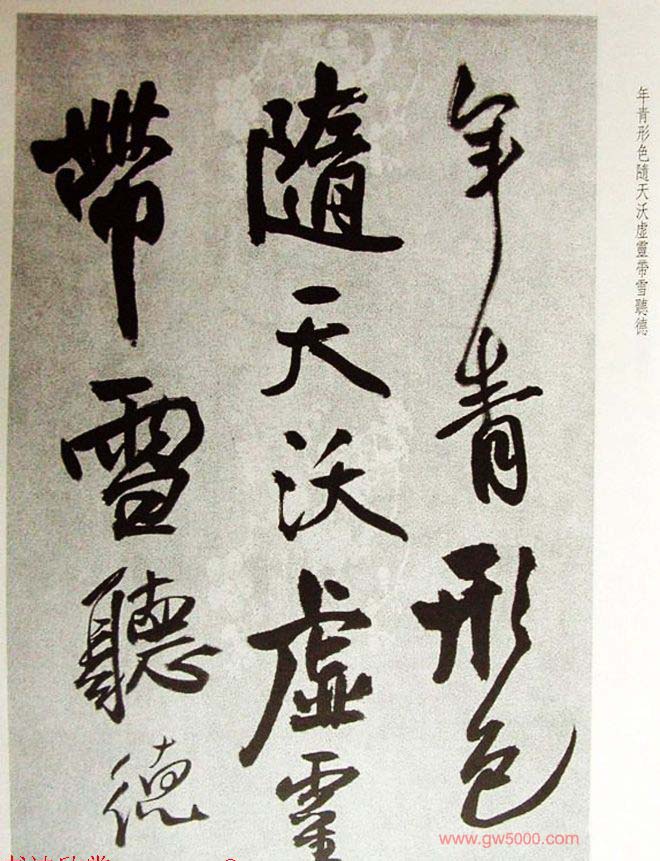 年青形色隨天沃虛靈帶雪聽德
年青形色
隨天沃虛靈
帶雪聽德
www.gw5000.com